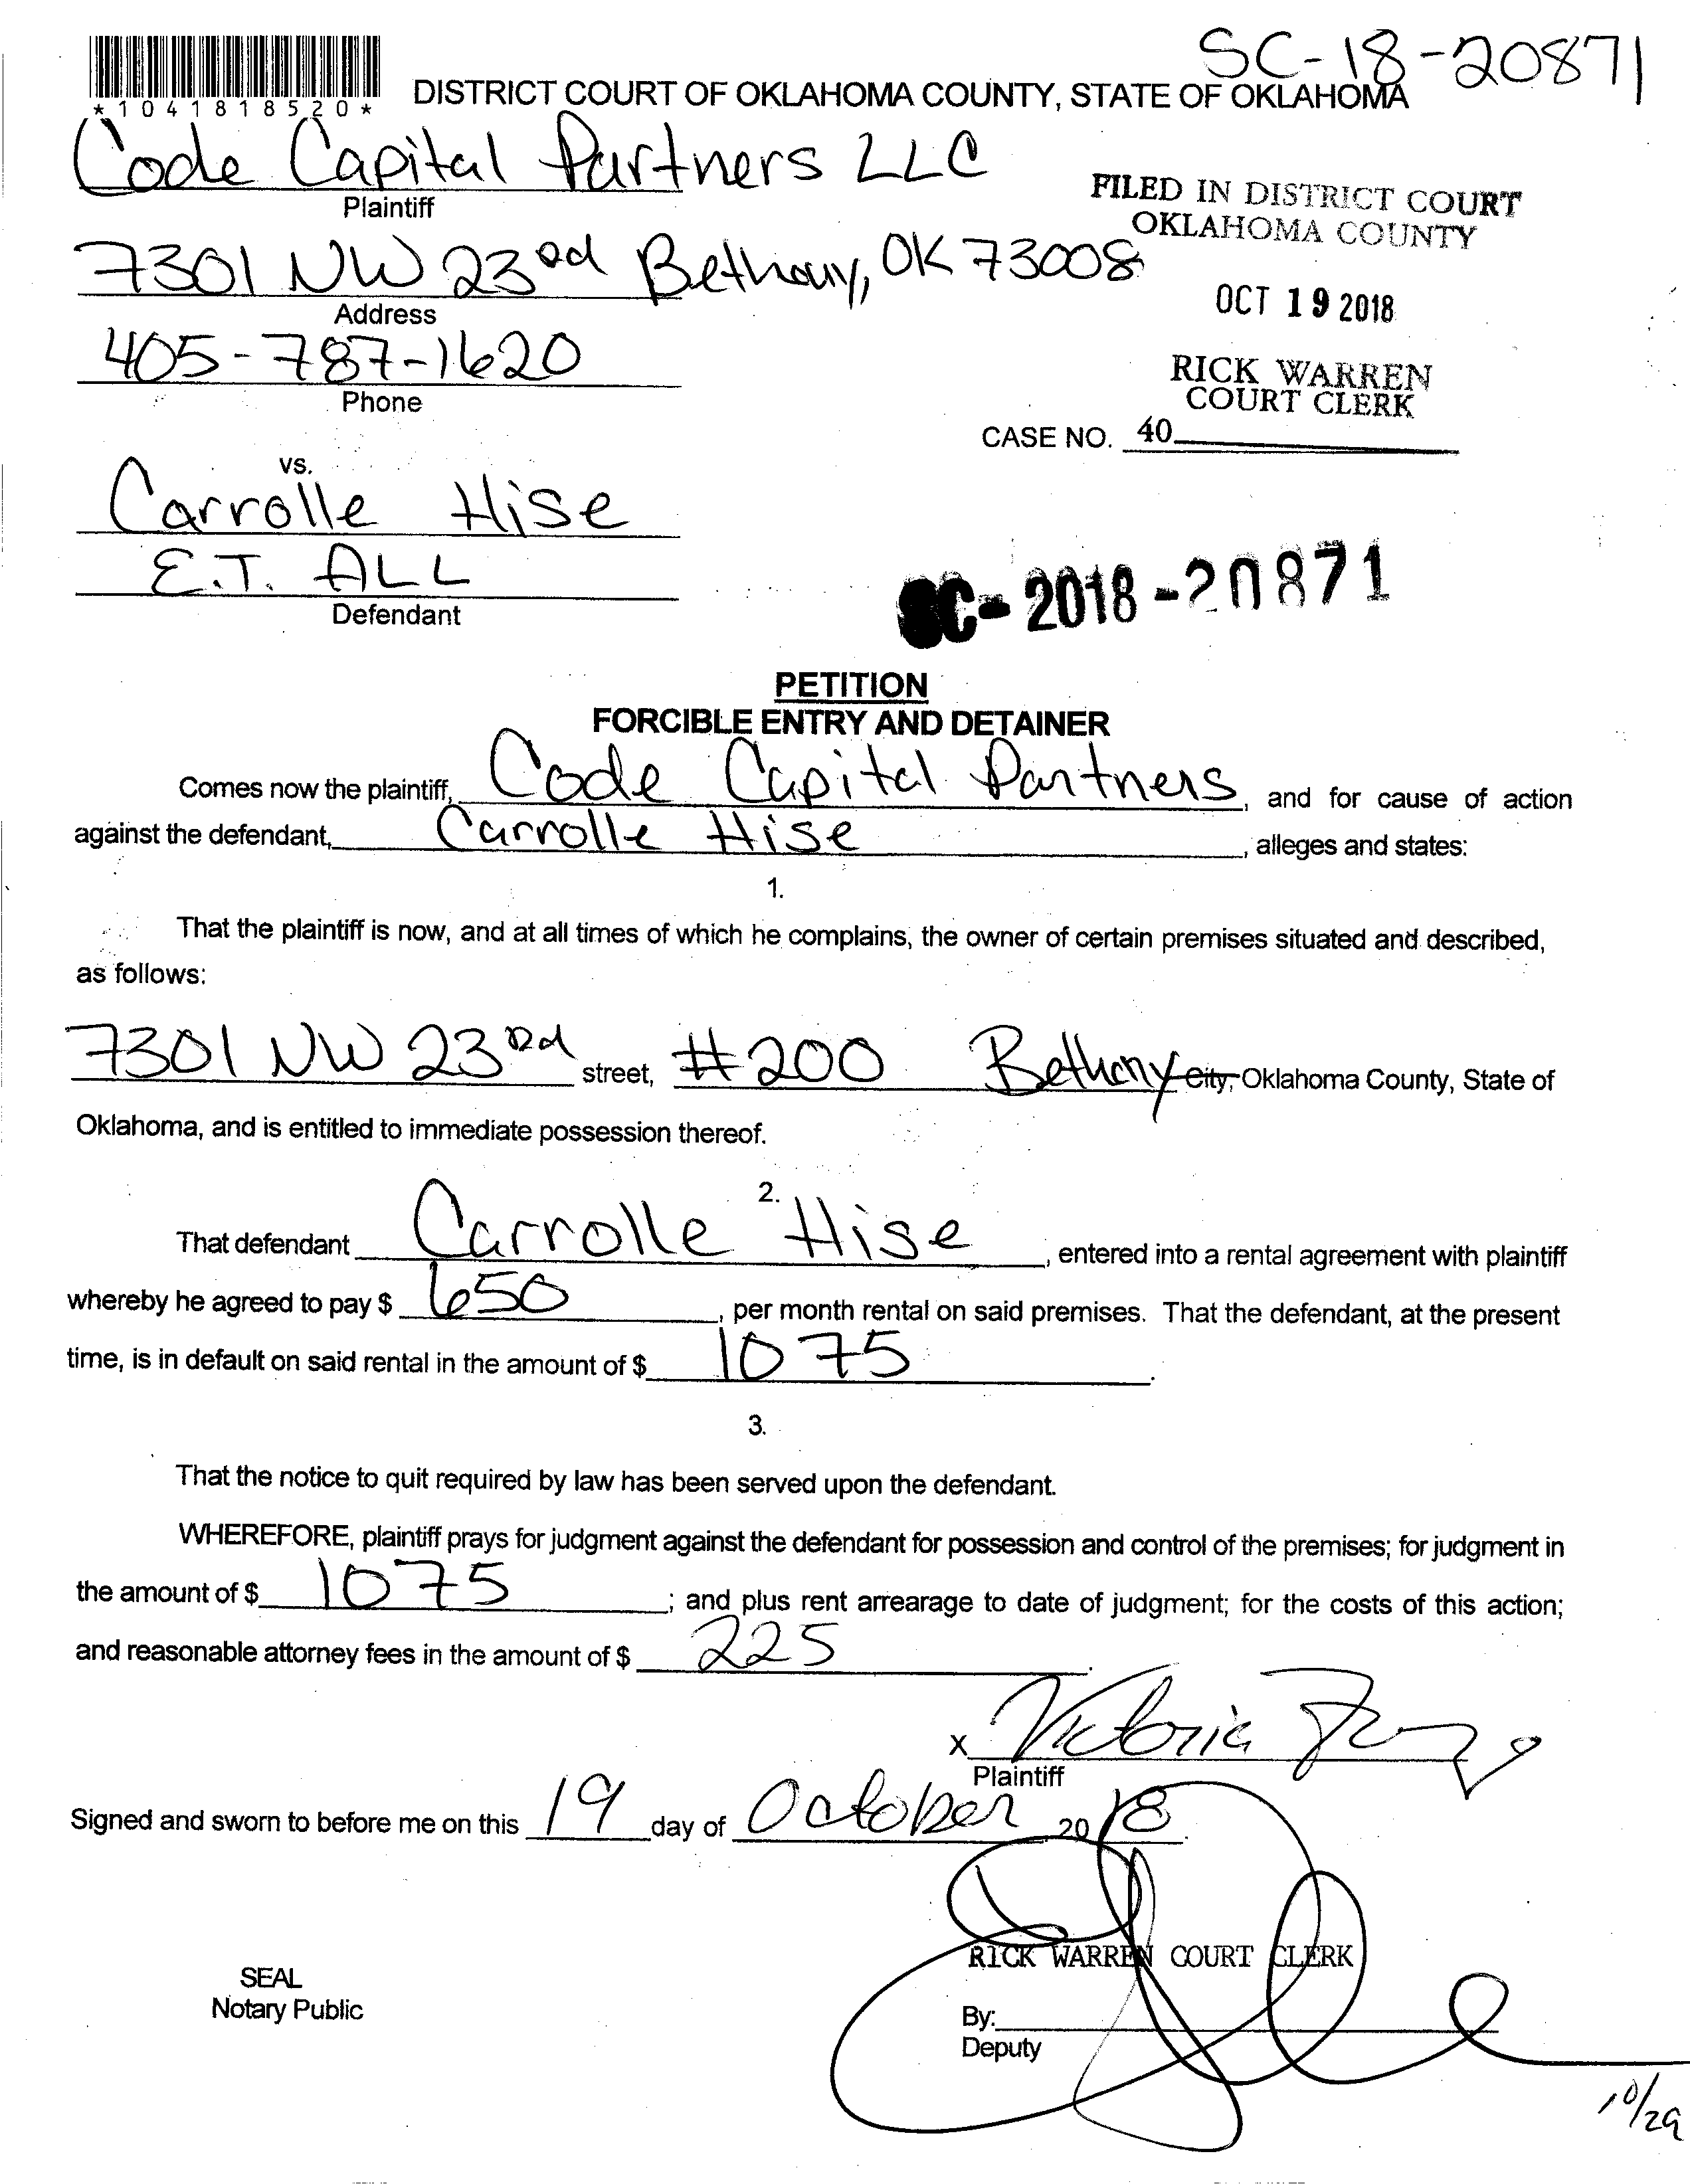 SC-18-20871
*1041818520*
DISTRICT COURT OF OKLAHOMA COUNTY, STATE OF OKLAHOMA
Code Capital Partners LLC
Plaintiff
FILED IN DISTRICT COURT
OKLAHOMA COUNTY
7301 NW 23rd Bethany, OK 73008
Address
OCT 19 2018
405-787-1620
Phone
RICK WARREN
COURT CLERK
CASE NO. 40
vs.
Carrolle Hise
E.T. ALL
Defendant
SC-2018-20871
PETITION
FORCIBLE ENTRY AND DETAINER
Comes now the plaintiff, Code Capital Partners, and for cause of action
against the defendant, Carrolle Hise, alleges and states:
1.
That the plaintiff is now, and at all times of which he complains, the owner of certain premises situated and described,
as follows:
7301 NW 23rd street, #200 Bethany City, Oklahoma County, State of
Oklahoma, and is entitled to immediate possession thereof.
2.
That defendant Carrolle Hise, entered into a rental agreement with plaintiff
whereby he agreed to pay $ 650, per month rental on said premises. That the defendant, at the present
time, is in default on said rental in the amount of $ 1075.
3.
That the notice to quit required by law has been served upon the defendant.
WHEREFORE, plaintiff prays for judgment against the defendant for possession and control of the premises; for judgment in
the amount of $ 1075; and plus rent arrearage to date of judgment; for the costs of this action;
and reasonable attorney fees in the amount of $ 225.
X Victoria
Plaintiff
Signed and sworn to before me on this 19 day of October 2018.
RICK WARREN COURT CLERK
SEAL
Notary Public
By:
Deputy
10/29